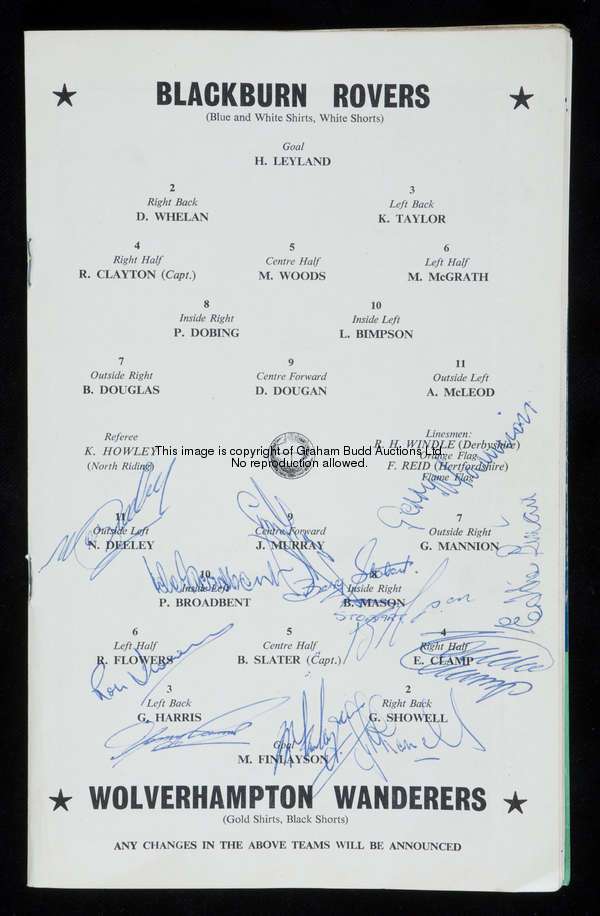 BLACKBURN ROVERS
(Blue and White Shirts, White Shorts)
Goal
H. LEYLAND
2 3
Right Back Left Back
D. WHELAN K. TAYLOR
4 5 6
Right Half Centre Half Left Half
R. CLAYTON (Capt.) M. WOODS M. McGRATH
8 10
Inside Right Inside Left
P. DOBING L. BIMPSON
7 9 11
Outside Right Centre Forward Outside Left
B. DOUGLAS D. DOUGAN A. McLEOD
Referee Linesmen:
K. HOWLEY R. H. WINDLE (Derbyshire)
Orange Flag
(North Riding) F. REID (Hertfordshire)
Flame Flag
This image is copyright of Graham Budd Auctions Ltd
No reproduction allowed.
Gerry Mannion
11 9 7
Outside Left Centre Forward Outside Right
N. DEELEY J. MURRAY G. MANNION
10 8
Inside Left Inside Right
P. BROADBENT B. MASON
STOBART
6 5 4
Left Half Centre Half Right Half
R. FLOWERS B. SLATER (Capt.) E. CLAMP
Ron Flowers
3 2
Left Back Right Back
G. HARRIS G. SHOWELL
Goal
M. FINLAYSON
WOLVERHAMPTON WANDERERS
(Gold Shirts, Black Shorts)
ANY CHANGES IN THE ABOVE TEAMS WILL BE ANNOUNCED